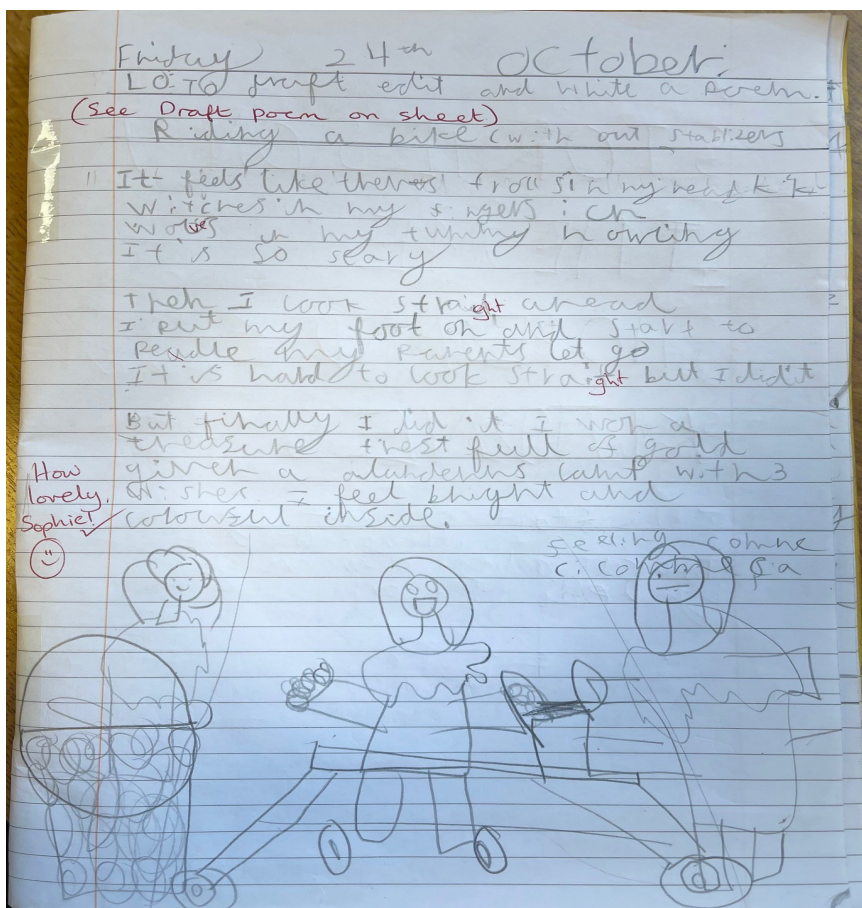 Friday 24th October.
LO-To draft edit and write a poem.
(see Draft poem on sheet)
Riding a bike (with out stablizers
It feels like theres trolls in my head kik
witches in my fingers
wolves in my tummy howling
It is so scary
then I look straight ahead
I put my foot on and start to
peadle my parents let go
It is hard to look straight but I did it
But finally I did it I won a
threasure chest full of gold
given a alanderins lamp with 3
wishes I feel bright and
colourful inside.
How
lovely,
Sophie!
feeling